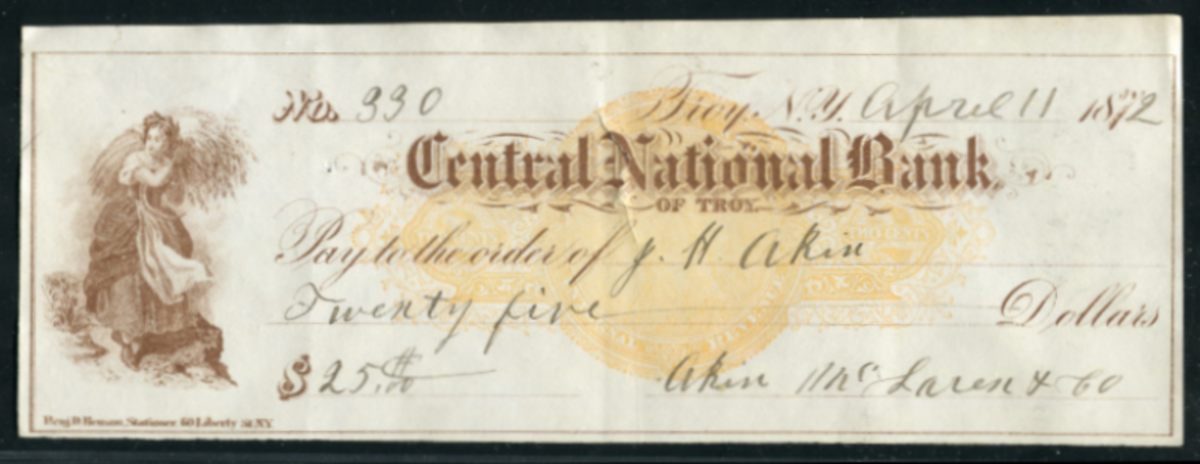 No. 330 Troy, N.Y. April 11 1872
Central National Bank
OF TROY.
Pay to the order of J. H. Aken
Twenty five Dollars
$ 25.
Aken McLaren & Co
Stationer, 60 Liberty St. N.Y.